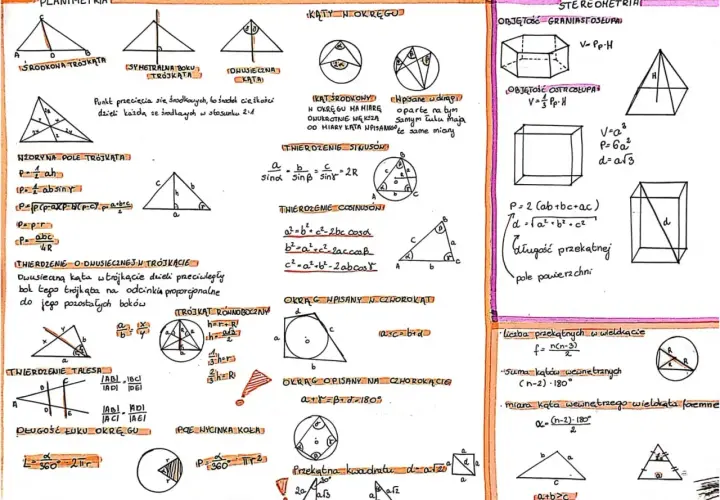 PLANIMETRIA
C
A
D
B
ŚRODKOWA TRÓJKĄTA
SYMETRALNA BOKU
TRÓJKĄTA
DWUSIECZNA
KĄTA
Punkt przecięcia się środkowych, to środek ciężkości
dzieli każdą ze środkowych w stosunku 2:1
WZORY NA POLE TRÓJKĄTA
P = 1/2 ah
P = 1/2 ab sin γ
P = √p(p-a)(p-b)(p-c), p = a+b+c/2
P = p·r
P = abc/4R
c
h
b
a
TWIERDZENIE O DWUSIECZNEJ W TRÓJKĄCIE
Dwusieczna kąta w trójkącie dzieli przeciwległy
bok tego trójkąta na odcinki proporcjonalne
do jego pozostałych boków
x
y
b
a
a/b = x/y
TRÓJKĄT RÓWNOBOCZNY
h = r+R
h = a√3/2
1/3 h = r
2/3 h = R
TWIERDZENIE TALESA
|AB|/|AD| = |BC|/|DE|
|AB|/|AC| = |AD|/|AE|
DŁUGOŚĆ ŁUKU OKRĘGU
L = α/360° · 2πr
POLE WYCINKA KOŁA
P = α/360° · πr²
KĄTY W OKRĘGU
α
2α
KĄT ŚRODKOWY
W OKRĘGU MA MIARĘ
DWUKROTNIE WIĘKSZĄ
OD MIARY KĄTA WPISANEGO
Wpisane w okrąg i
oparte na tym
samym łuku mają
te same miary
TWIERDZENIE SINUSÓW
a/sin α = b/sin β = c/sin γ = 2R
TWIERDZENIE COSINUSÓW
a² = b² + c² - 2bc cos α
b² = a² + c² - 2ac cos β
c² = a² + b² - 2ab cos γ
OKRĄG WPISANY W CZWOROKĄT
a+c = b+d
OKRĄG OPISANY NA CZWOROKĄCIE
α+γ = β+δ = 180°
Przekątna kwadratu d = a√2
2a
30°
a√3
a
a√2
STEREOMETRIA
OBJĘTOŚĆ GRANIASTOSŁUPA
V = Pp·H
OBJĘTOŚĆ OSTROSŁUPA
V = 1/3 Pp·H
H
V = a³
P = 6a²
d = a√3
P = 2(ab+bc+ac)
d = √a²+b²+c²
długość przekątnej
pole powierzchni
liczba przekątnych w wielokącie
f = n(n-3)/2
suma kątów wewnętrznych
(n-2)·180°
miara kąta wewnętrznego wielokąta foremnego
α = (n-2)·180°/2
R
R
b
a
c
a+b>c